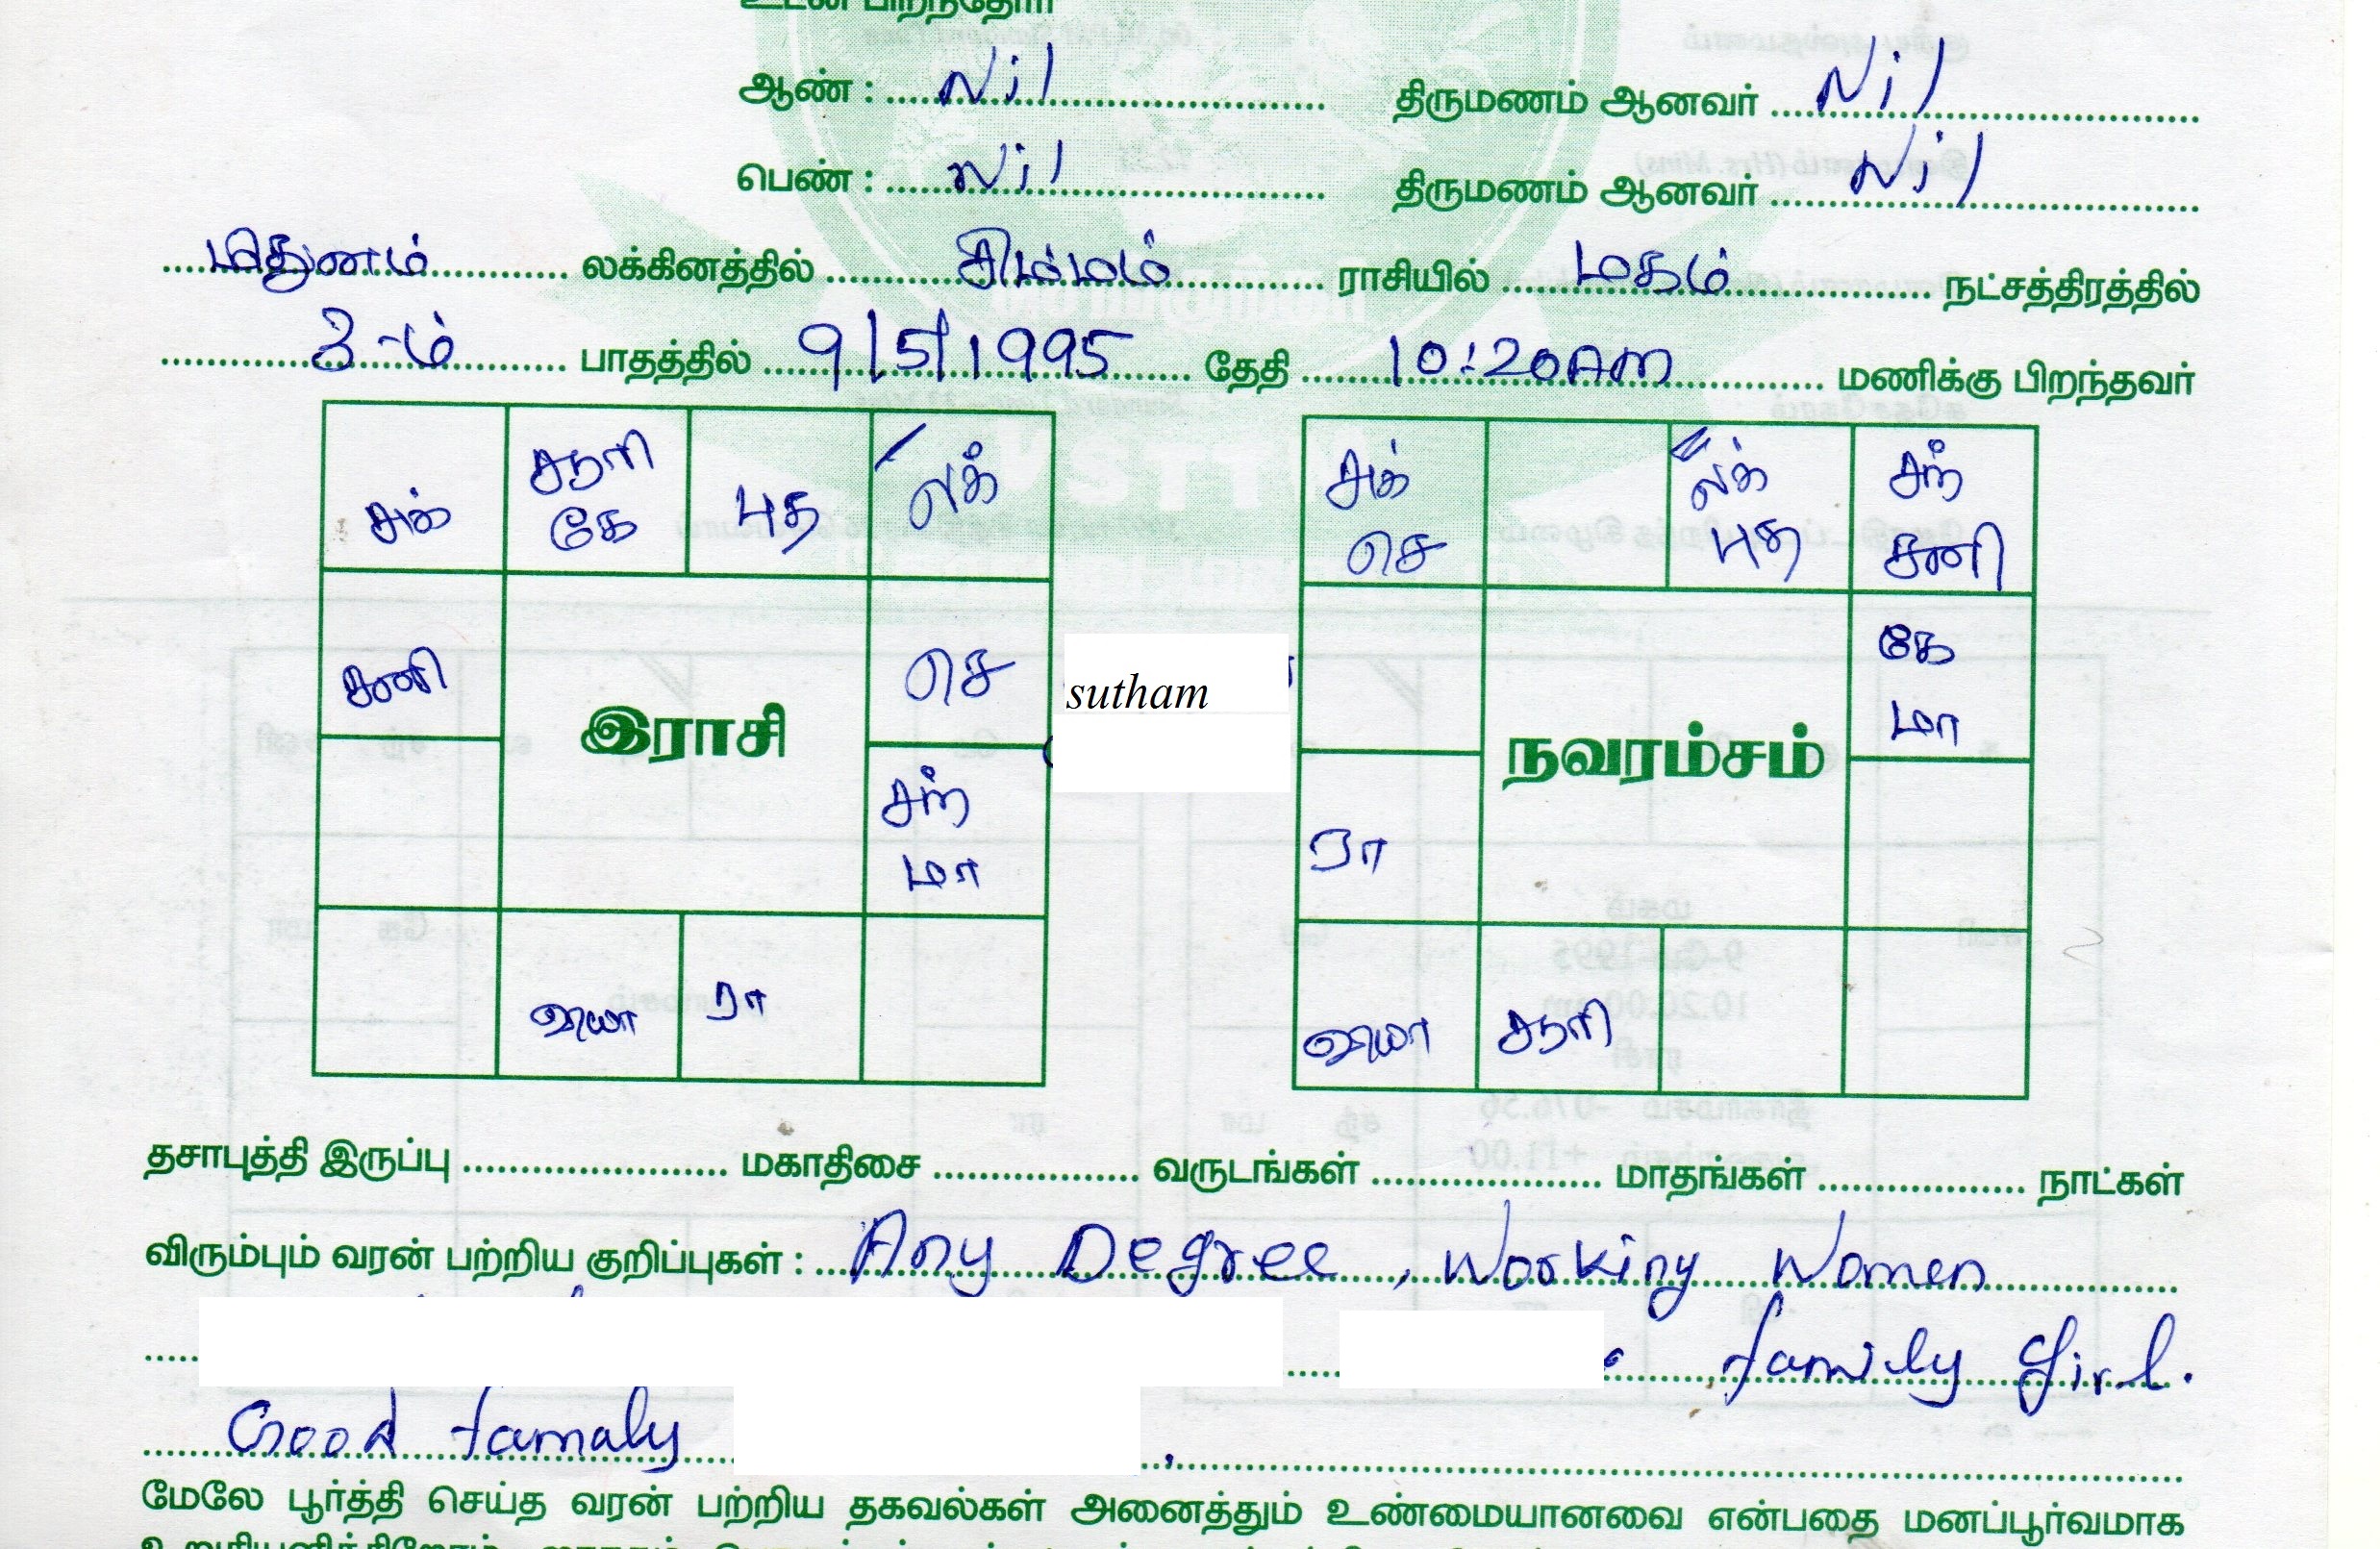 உடன் பிறந்தோர்
ஆண் : Nil திருமணம் ஆனவர் Nil
பெண் : Nil திருமணம் ஆனவர் Nil
மிதுனம் லக்கினத்தில் சிம்மம் ராசியில் மகம் நட்சத்திரத்தில்
3-ம் பாதத்தில் 9/5/1995 தேதி 10:20AM மணிக்கு பிறந்தவர்
சுக் சூரி கே புத லக்
சனி செ
இராசி
சந் மா
வியா ரா
sutham
சுக் செ லக் புத சந் சனி
கே மா
நவரம்சம்
ரா
வியா சூரி
தசாபுத்தி இருப்பு மகாதிசை வருடங்கள் மாதங்கள் நாட்கள்
விரும்பும் வரன் பற்றிய குறிப்புகள் : Any Degree, Working Women
family girl.
Good famaly
மேலே பூர்த்தி செய்த வரன் பற்றிய தகவல்கள் அனைத்தும் உண்மையானவை என்பதை மனப்பூர்வமாக